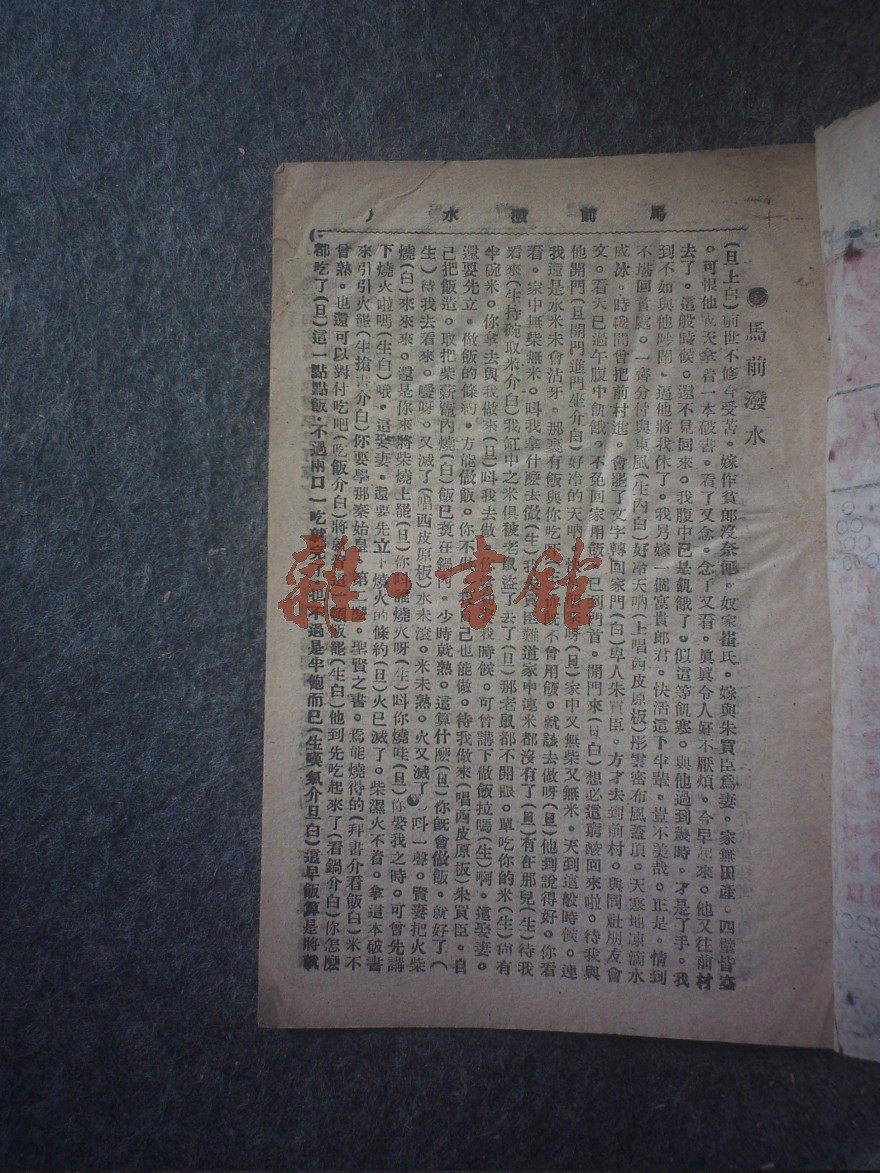 馬前潑水
馬前潑水
(旦上白)前世不修今受苦。嫁作貧郎沒奈何。奴家崔氏。嫁與朱買臣為妻。家無田產。四壁皆空
。可恨他 天拿着一本破書。看了又念。念了又看。眞眞令人好不厭煩。今早起來。他又往前村
去了。這般時候。還不見回來。我腹中已是飢餓了。似這等飢寒。與他過到幾時。才是了手。我
到不如與他吵鬧。逼他將我休了。我另嫁一個富貴郎君。快活這下半輩。豈不美哉。正是。情到
不堪回首處。一齊分付與東風(生內白)好冷天吶(上唱西皮原板)彤雲密布風蓋頂。天寒地凍滴水
成冰。時纔間曾把前村進。會罷了文字轉回家門(白)卑人朱買臣。方才去到前村。與同社朋友會
文。看天已過午腹中飢餓。不免回家用飯。已到門首。開門來(旦白)想必這窮酸回來啦。待我與
他開門(旦開門進門坐介白)好冷的天吶 呀(旦)家中又無柴又無米。天到這般時候。連
我還是水米未曾沾牙。那裏有飯與你吃 你既不曾用飯。就該去做呀(旦)他到說得好。你看
看。家中無柴無米。叫我拿什麼去做(生)我 買臣難道家中連米都沒有了(旦)有在那兒(生)待我
看來(生持碗取米介白)我缸中之米俱被老鼠盜了去了(旦)那老鼠都不開眼。單吃你的米(生)尚有
半碗米。你拿去與我做來(旦)叫我去做 我時候。可曾講下做飯拉嗎(生)啊。這娶妻。
還要先立。做飯的條約。方能做飯。你不做 己也能做。待我做來(唱西皮原板)朱買臣。自
己把飯造。取把柴薪灶內燒(白)飯已煑在鍋 少時就熟。這算什麼(旦)你旣會做飯。就好了(
生)待我去看來。噯呀。又滅了(唱西皮原板)水未滾。米未熟。火又滅了。叫一聲。賢妻把火柴
燒(白)來來來。還是你來將柴燒上罷(旦)你叫誰燒火呀(生)叫你燒哇(旦)你娶我之時。可曾先講
下燒火啦嗎(生白)哦。這娶妻。還要先立下燒火的條約(旦)火已滅了。柴濕火不着。拿這本破書
來引引火罷(生搶書介白)你要學那秦始皇 第二麼。聖賢之書。焉能燒待的(拜書介看飯白)米不
曾熟。也還可以對付吃吧(吃飯介白)將就着 頓飯罷(生白)他到先吃起來了(看鍋介白)你怎麼
都吃了(旦)這一點點飯。不過兩口一吃就完了也不過是半飽而已(生嘆氣介旦白)這早飯算是將就
雜·書館